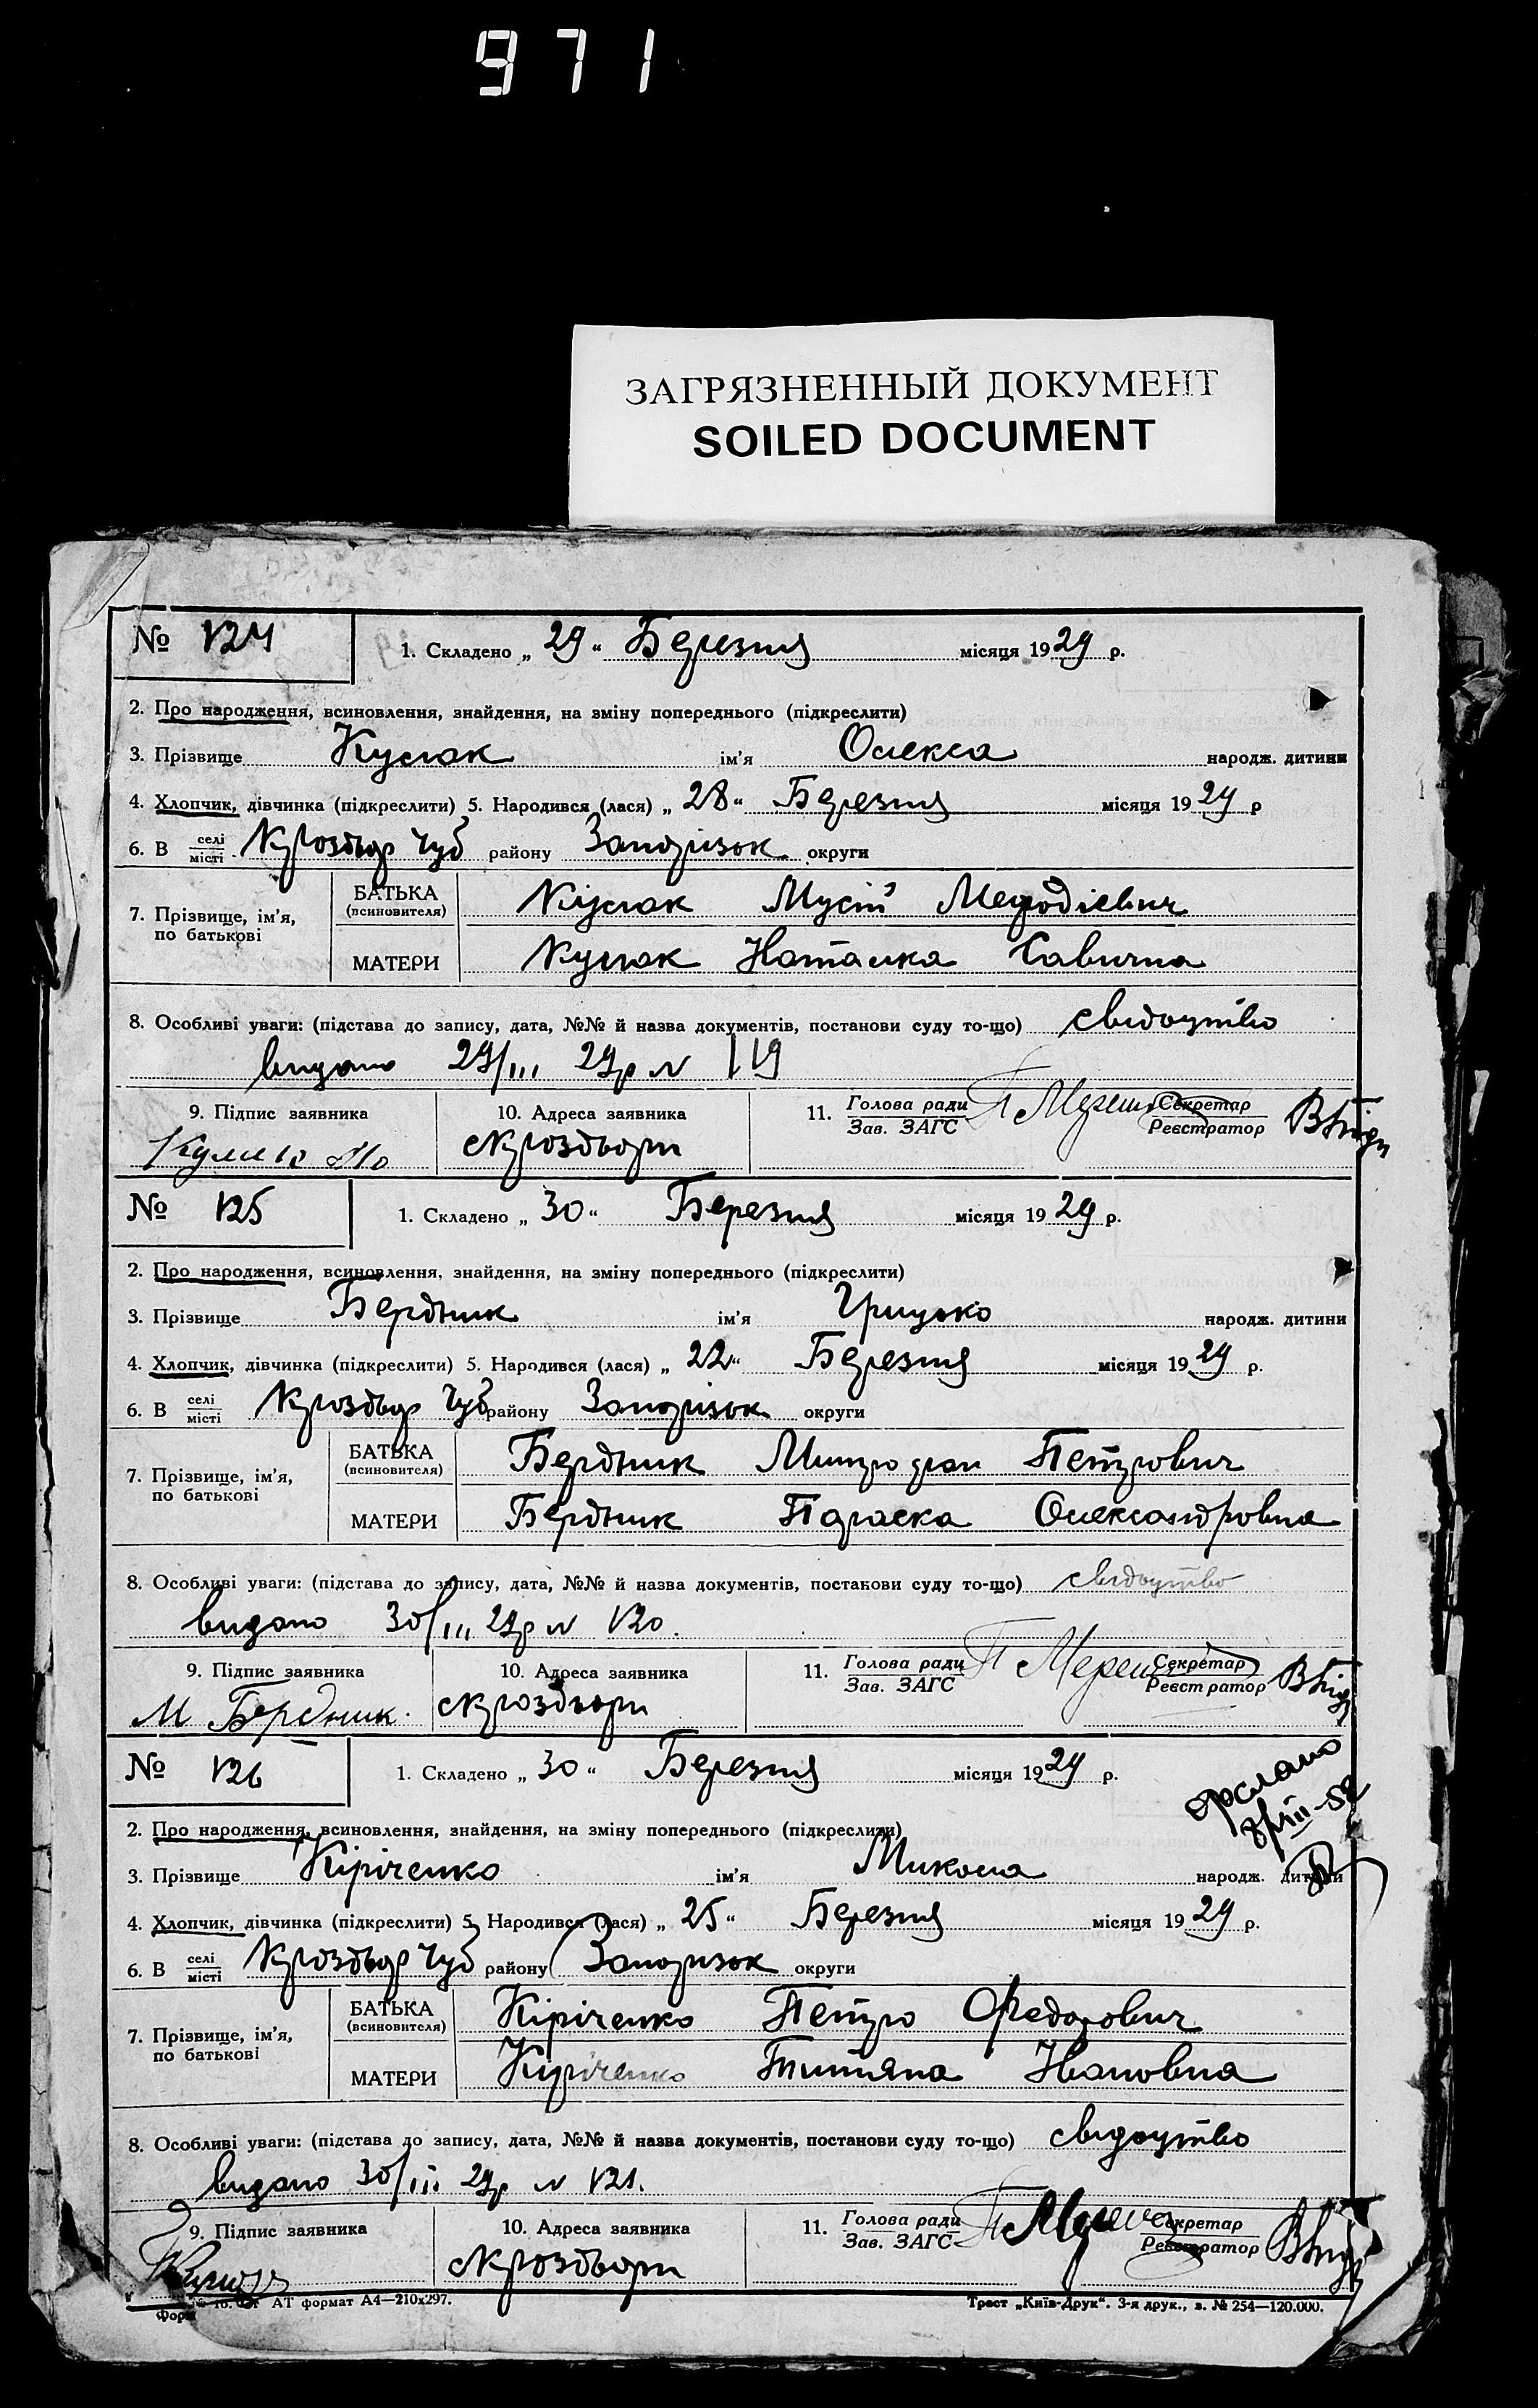 971
ЗАГРЯЗНЕННЫЙ ДОКУМЕНТ
SOILED DOCUMENT
№ 124 1. Складено „ 29 “ Березня місяця 1929 р.
2. Про народження, всиновлення, знайдення, на зміну попереднього (підкреслити)
3. Прізвище ім'я Олекса народж. дитини
4. Хлопчик, дівчинка (підкреслити) 5. Народився (лася) „ 28 “ Березня місяця 1929 р
6. В селі місті Чуб району Запоріжж округи
7. Прізвище, ім'я, по батькові
БАТЬКА (всиновителя) Мусій Мефодієвич
МАТЕРИ Наталка Савична
8. Особливі уваги: (підстава до запису, дата, №№ й назва документів, постанови суду то-що) свідоцтво
видано 29/III 29р N 119
9. Підпис заявника 10. Адреса заявника 11. Голова ради Зав. ЗАГС Секретар Реєстратор
№ 125 1. Складено „ 30 “ Березня місяця 1929 р.
2. Про народження, всиновлення, знайдення, на зміну попереднього (підкреслити)
3. Прізвище Бердник ім'я Грицько народж. дитини
4. Хлопчик, дівчинка (підкреслити) 5. Народився (лася) „ 22 “ Березня місяця 1929 р.
6. В селі місті Чуб району округи
7. Прізвище, ім'я, по батькові
БАТЬКА (всиновителя) Бердник Митрофан Петрович
МАТЕРИ Бердник Параска Олександровна
8. Особливі уваги: (підстава до запису, дата, №№ й назва документів, постанови суду то-що) свідоцтво
видано 30/III 29р N 120.
9. Підпис заявника 10. Адреса заявника 11. Голова ради Зав. ЗАГС Секретар Реєстратор
М Бердник.
№ 126 1. Складено „ 30 “ Березня місяця 1929 р.
2. Про народження, всиновлення, знайдення, на зміну попереднього (підкреслити)
3. Прізвище Кіріченко ім'я Микола народж. дитини
4. Хлопчик, дівчинка (підкреслити) 5. Народився (лася) „ 25 “ Березня місяця 1929 р.
6. В селі місті Чуб району округи
7. Прізвище, ім'я, по батькові
БАТЬКА (всиновителя) Кіріченко Петро Федорович
МАТЕРИ Кіріченко Титяна Ивановна
8. Особливі уваги: (підстава до запису, дата, №№ й назва документів, постанови суду то-що) свідоцтво
видано 30/III 29р N 121.
9. Підпис заявника 10. Адреса заявника 11. Голова ради Зав. ЗАГС Секретар Реєстратор
АТ формат А4—210x297. Трест „Київ-Друк“. 3-я друк., з. № 254—120.000.